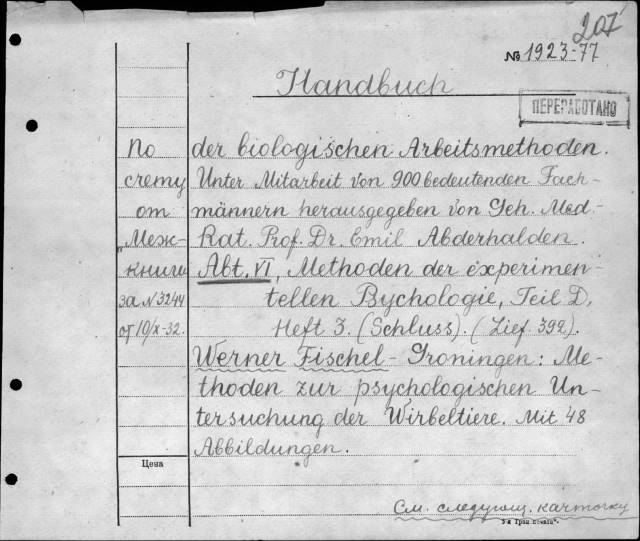 207
№ 1923-77
Handbuch
ПЕРЕРАБОТАНО
По
счету
от
„Меж-
книги
за N 3244
от 10/X-32.
Цена
der biologischen Arbeitsmethoden.
Unter Mitarbeit von 900 bedeutenden Fach-
männern herausgegeben von Geh. Med.-
Rat. Prof. Dr. Emil Abderhalden.
Abt. VI, Methoden der experimen-
tellen Bychologie, Teil D,
Heft 3. (Schluss). (Lief 392).
Werner Fischel - Groningen: Me-
thoden zur psychologischen Un-
tersuchung der Wirbeltiere. Mit 48
Abbildungen.
См. следующ. карточку